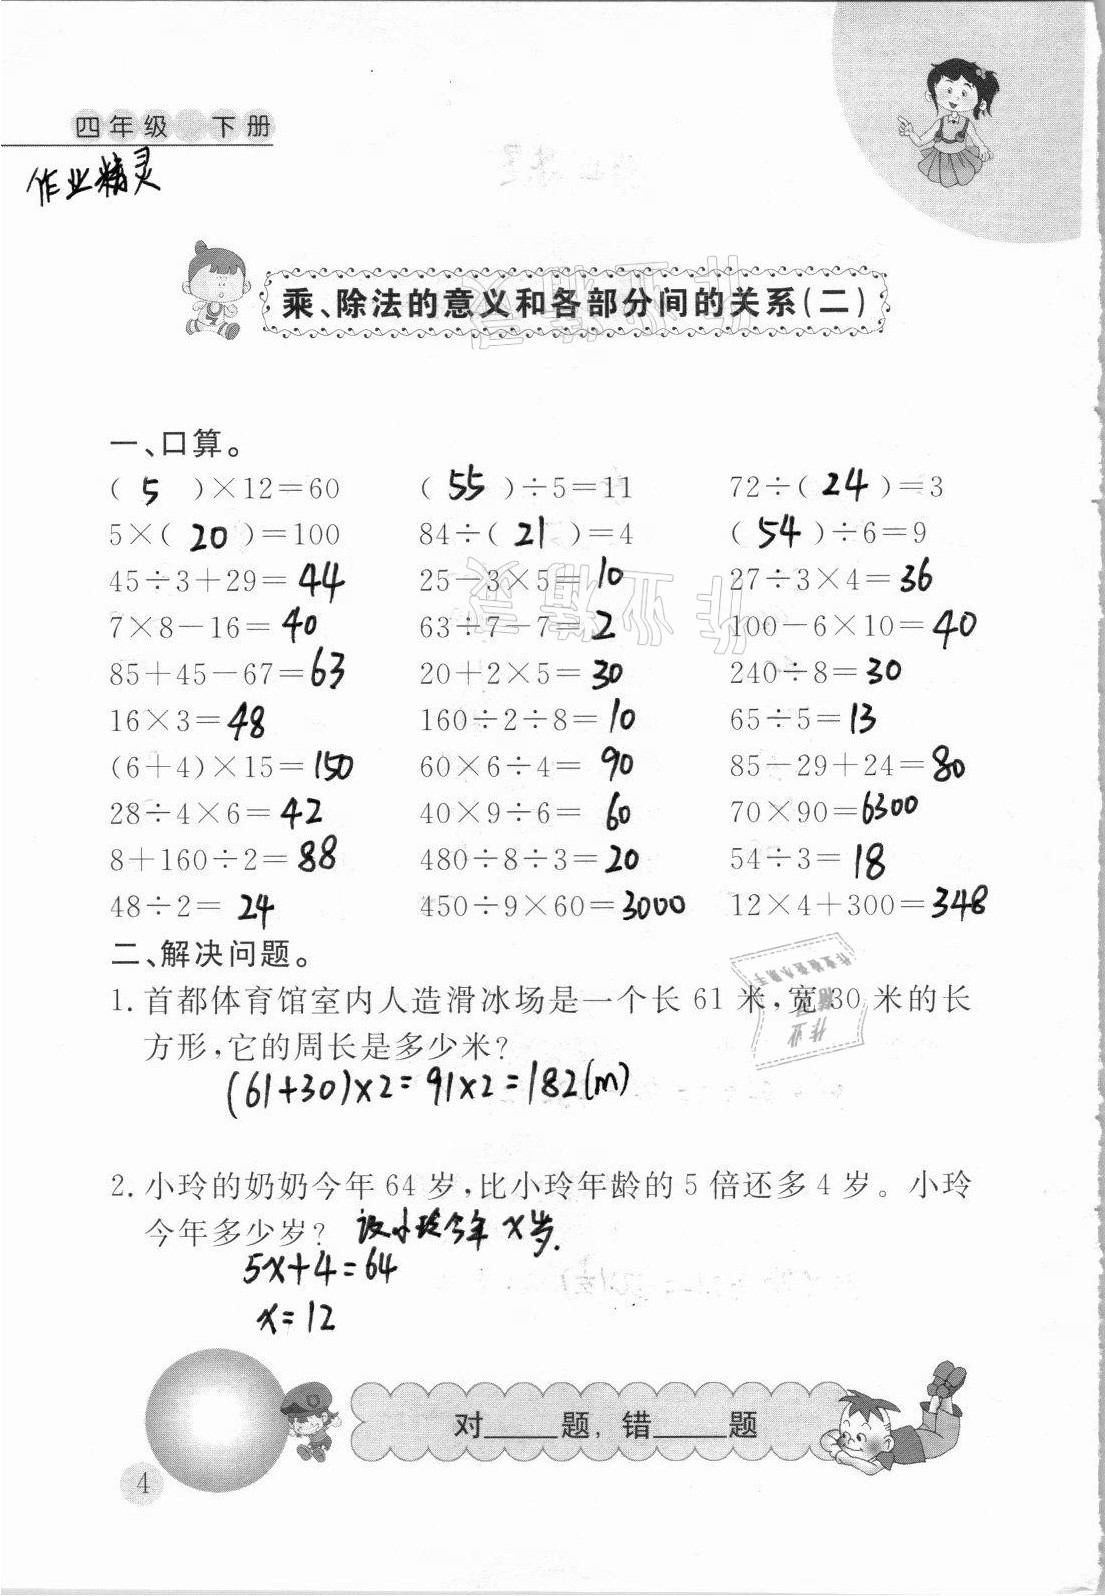 四年级 下册
作业精灵
乘、除法的意义和各部分间的关系(二)
一、口算。
( 5 )×12=60 ( 55 )÷5=11 72÷( 24 )=3
5×( 20 )=100 84÷( 21 )=4 ( 54 )÷6=9
45÷3+29=44 25-3×5=10 27÷3×4=36
7×8-16=40 63÷7-7=2 100-6×10=40
85+45-67=63 20+2×5=30 240÷8=30
16×3=48 160÷2÷8=10 65÷5=13
(6+4)×15=150 60×6÷4=90 85-29+24=80
28÷4×6=42 40×9÷6=60 70×90=6300
8+160÷2=88 480÷8÷3=20 54÷3=18
48÷2=24 450÷9×60=3000 12×4+300=348
二、解决问题。
1. 首都体育馆室内人造滑冰场是一个长 61 米,宽 30 米的长
方形,它的周长是多少米?
(61+30)×2=91×2=182(m)
2. 小玲的奶奶今年 64 岁,比小玲年龄的 5 倍还多 4 岁。小玲
今年多少岁? 设小玲今年 x岁.
5x+4=64
x=12
对____题,错____题
4